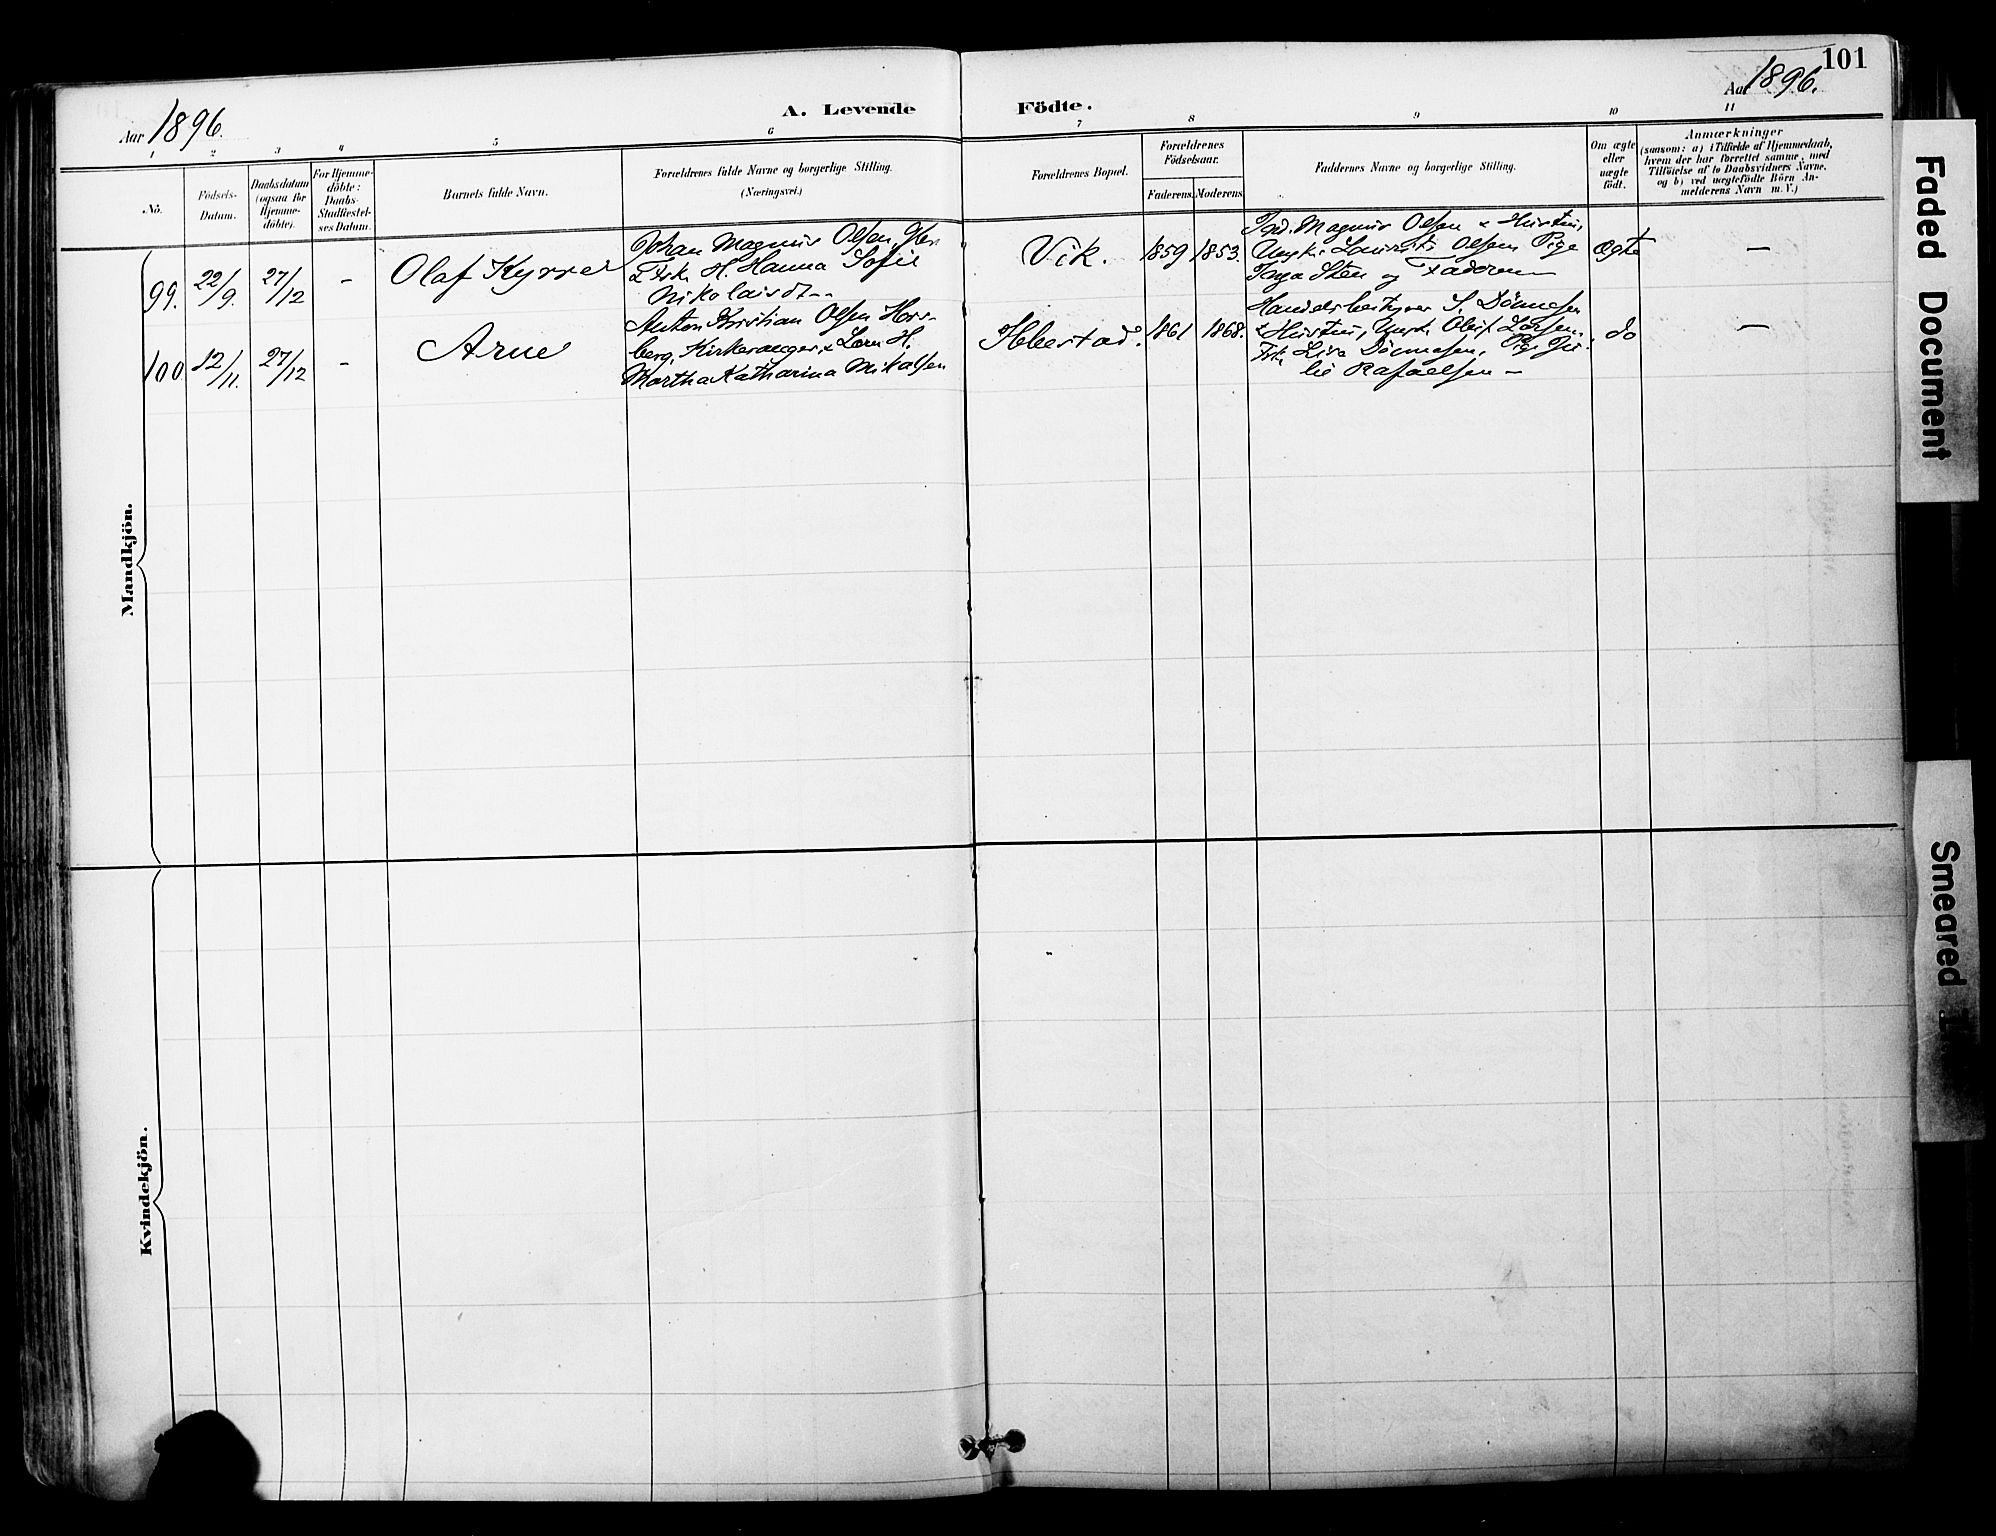 101
Aar 1896.
A. Levende Födte.
Aar 1896.
1 2 3 4 5 6 7 8 9 10 11
No.
Födsels-
Datum.
Daabsdatum
(ogsaa for
Hjemme-
döbte).
For Hjemme-
döbte:
Daabs-
Stadfæstel-
ses Datum.
Barnets fulde Navn.
Forældrenes fulde Navne og borgerlige Stilling.
(Næringsvei.)
Forældrenes Bopæl.
Forældrenes
Födselsaar.
Faderens. Moderens.
Faddernes Navne og borgerlige Stilling.
Om ægte
eller
uægte
födt.
Anmærkninger
(saasom: a) i Tilfælde af Hjemmedaab,
hvem der har forrettet samme, med
Tilföielse af to Daabsvidners Navne,
og b) ved uægtefödte Börn An-
melderens Navn m. V.)
Mandkjön.
99. 22/9. 27/12 - Olaf Kyrre
Johan Magnus Olsen,
H. Hanna Sofie
Nikolaisdt--
Vik. 1859 1853.
Ind. Magnus Olsen & Hustru,
Ungk. Olsen Pige
Inga Sten og Faderen
Ægte —
100 12/11. 27/12 - Arne
Anton Kristian Olsen Hors-
berg, Kirkesanger, & H.
Martha Katharina Mikalsen
Ibbestad. 1861 1868.
Handelsbestyrer S. Dönnesen
& Hustru, Ungk. Oluf Larsen.
Frk. Lisa Dönnesen, Pige Ju-
lie Rafaelsen —
do —
Kvindekjön.
Faded Document
Smeared